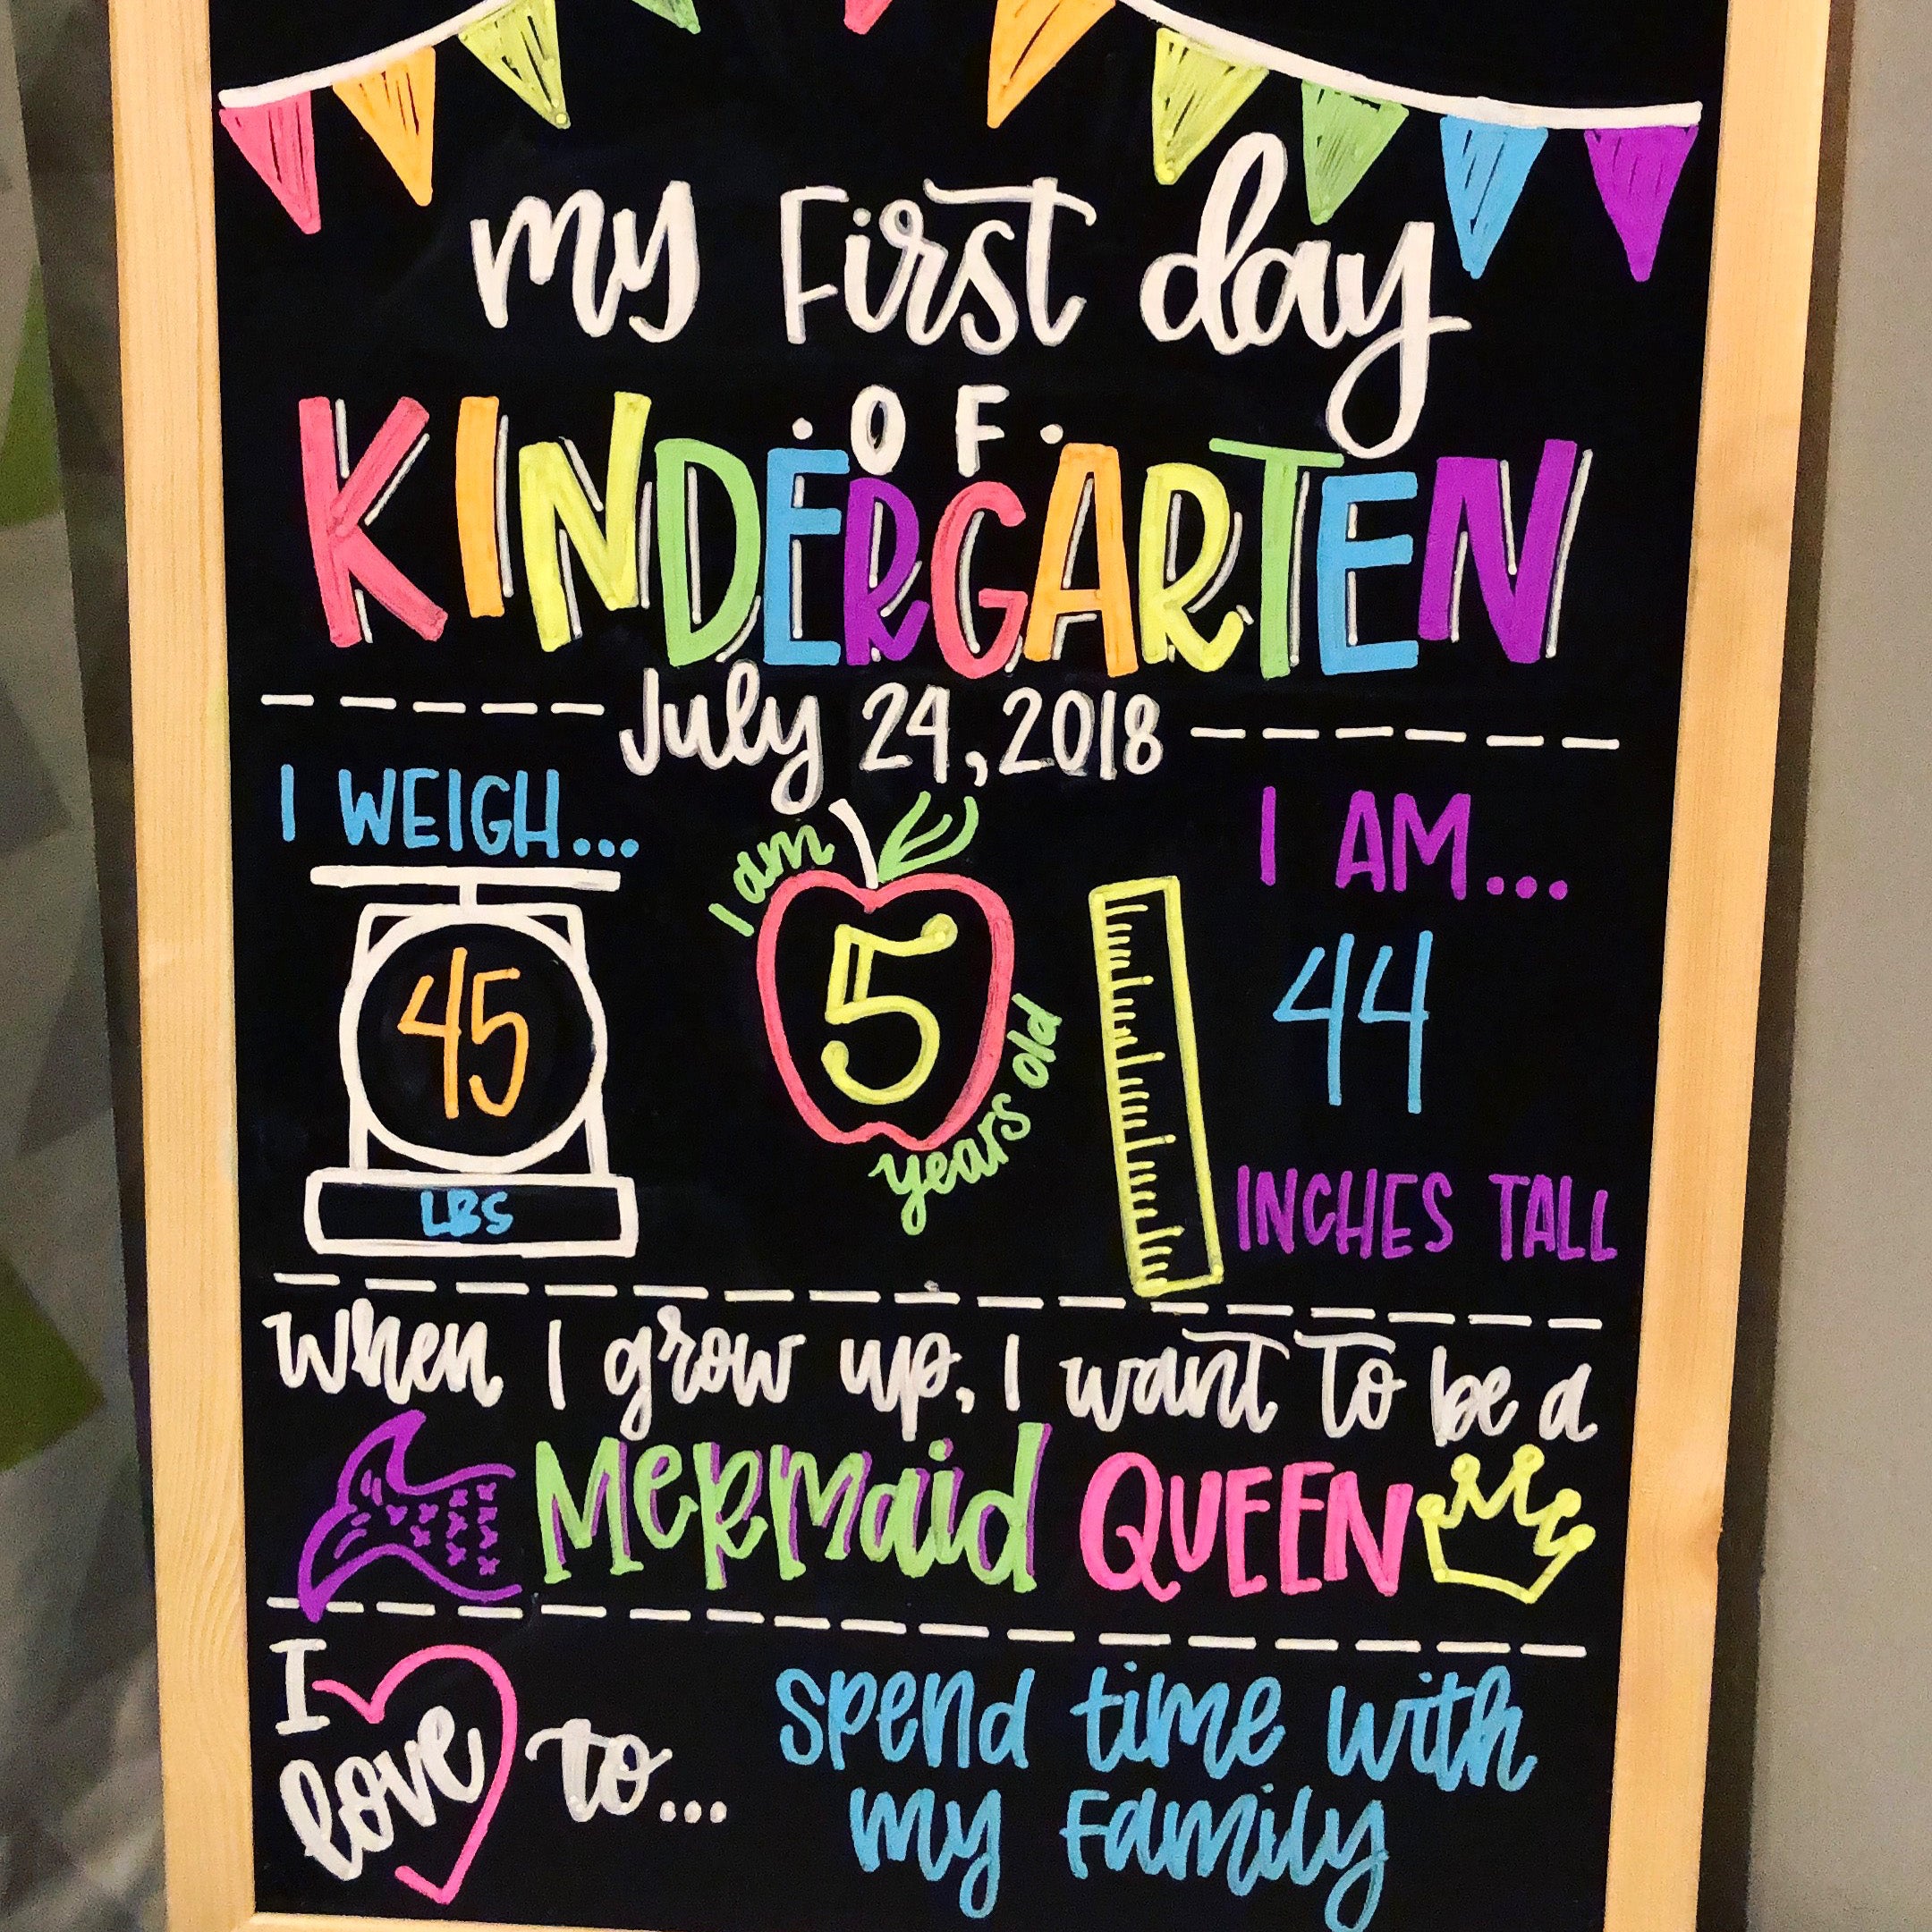 my First day
• OF •
KINDERGARTEN
July 24, 2018
I WEIGH...
45
LBS
I am
5
years old
I AM...
44
INCHES TALL
When I grow up, I want to be a
Mermaid QUEEN
I love to... spend time with
my Family